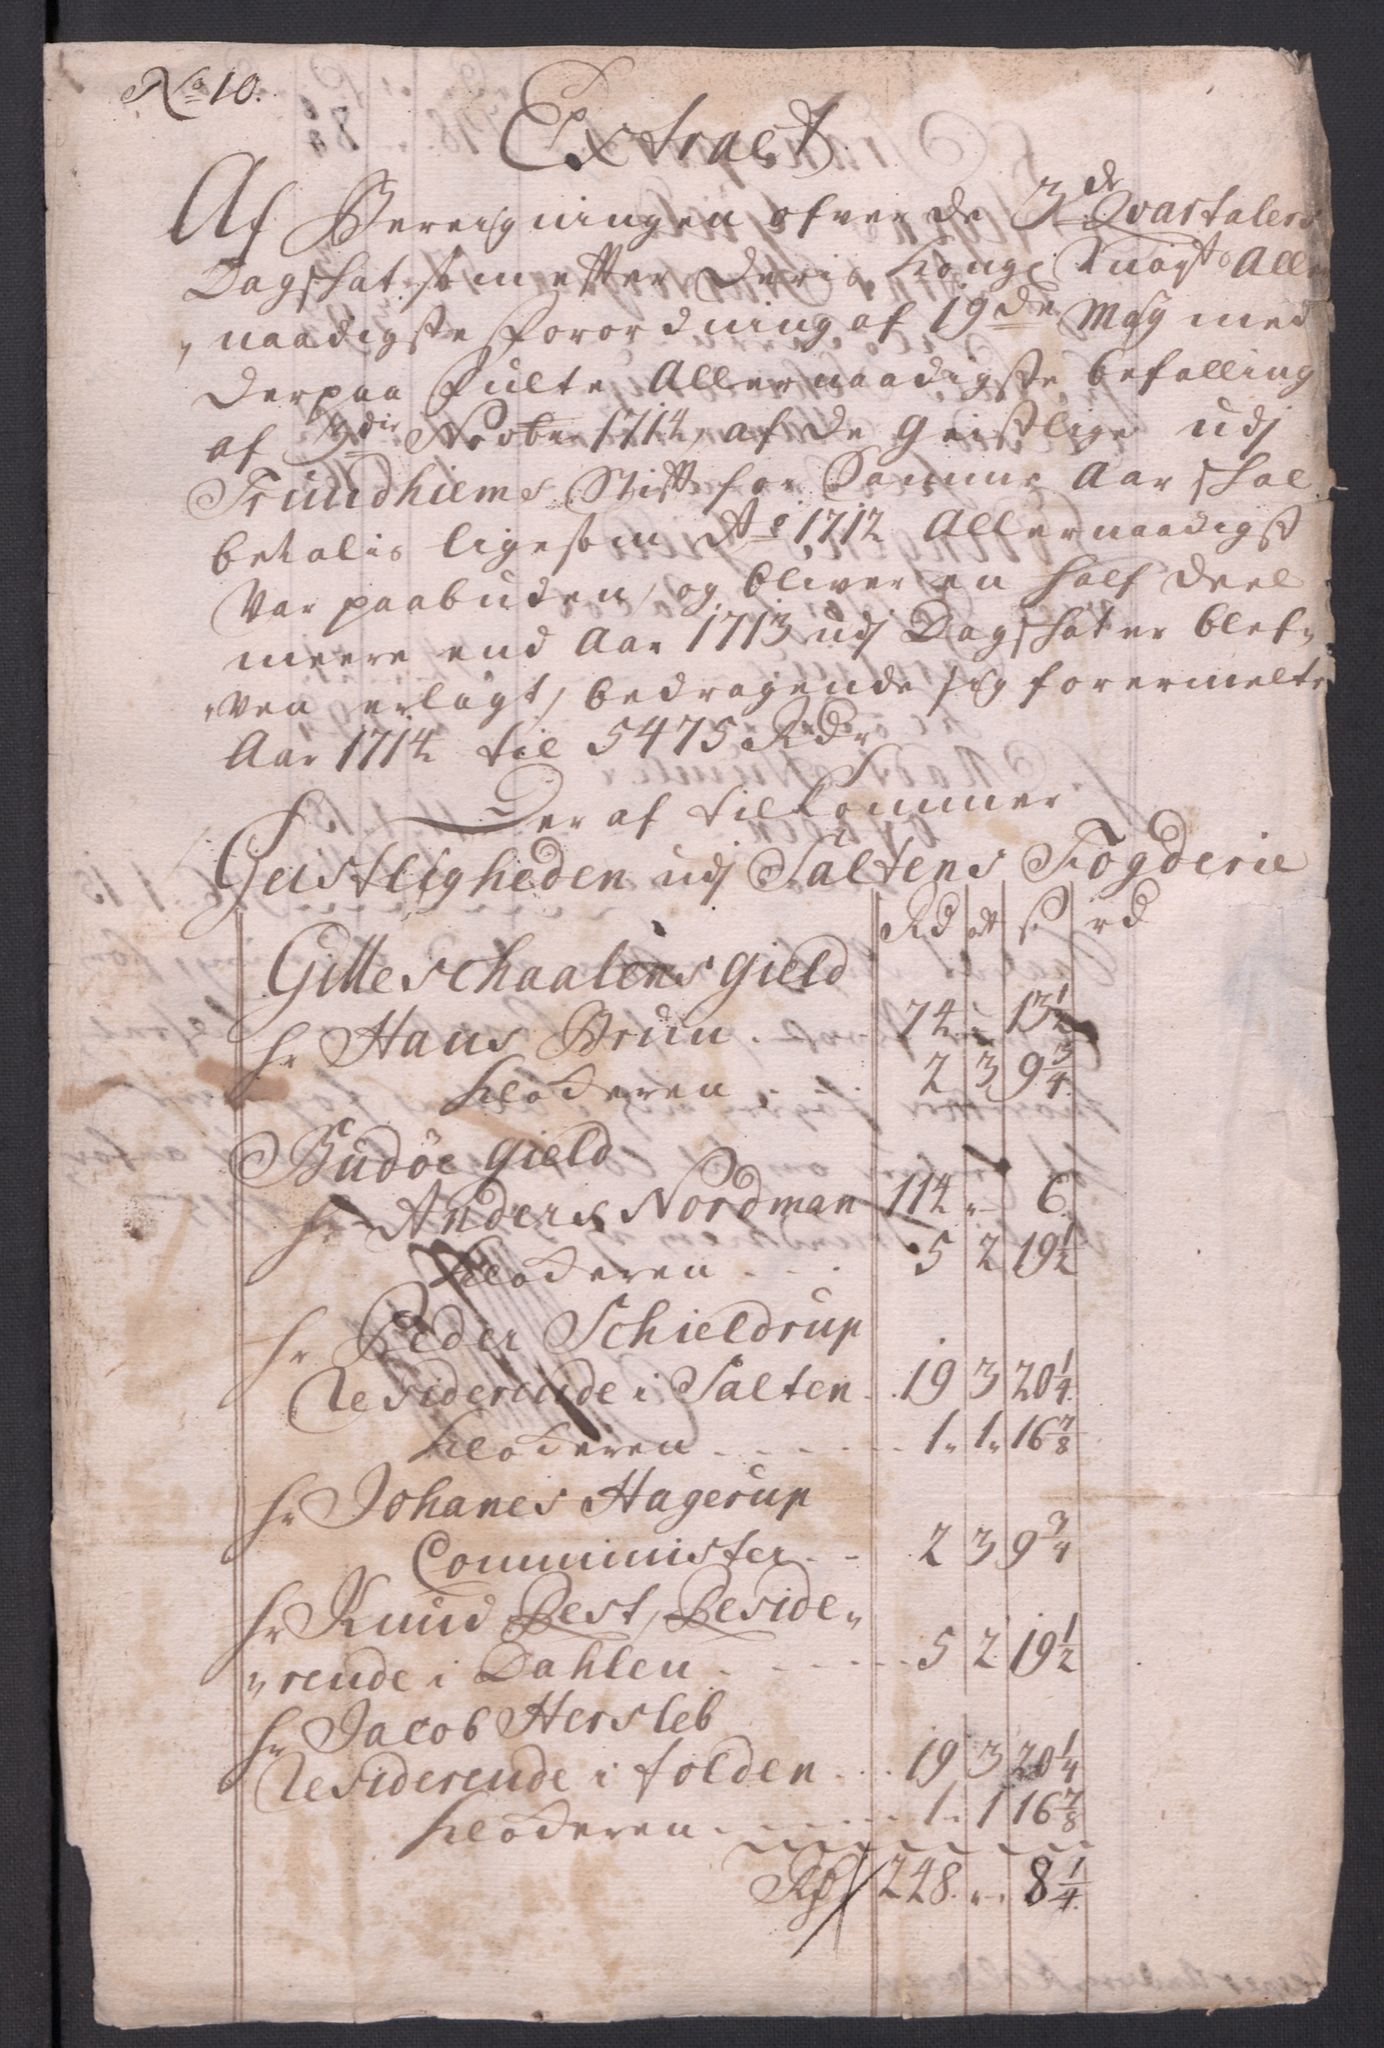 No 10.
Extract
Af Bereigningen ofver de 3de Qvartalers
Dagschat som efter Deris Kongl: Mayts Aller
naadigste Forordning af 19de May med
Derpaa fulte Allernaadigste befalling
af 19de Novbr 1714, af de geistlige udj
Trundhiems Stift for Samme Aar schal
betalis ligesom Ao 1712 Allernaadigst
var paabuden, og bliver en half deel
meere end Aar 1713 udj Dagschater blef-
ven erlagt, bedragende sig forermelte
Aar 1714 til 5475 Rdr
Deraf tilkommer
Geistligheden udj Saltens Fogderie
Rd ort s rd
Gilleschaalens gield
hr Hans Brun . 74 " 13 1/2
Klocheren 2 3 9 3/4
Budöe gield
hr Anders Nordman 114 " 6
Klocheren . . . 5 2 19 1/2
hr Peder Schieldrup
Residerende i Salten . . 19 3 20 1/4
Klocheren . . . . . 1 " 1 " 16 7/8
hr Johanes Hagerup
Comminister . . 2 3 9 3/4
hr Knud Best, Reside"
"rende i Dahlen . . . . . 5 2 19 1/2
hr Jacob Hersleb
Residerende i folden . . . 19 3 20 1/4
Klocheren . . . . . 1 " 1 16 7/8
Rdr 248 . " . 8 1/4